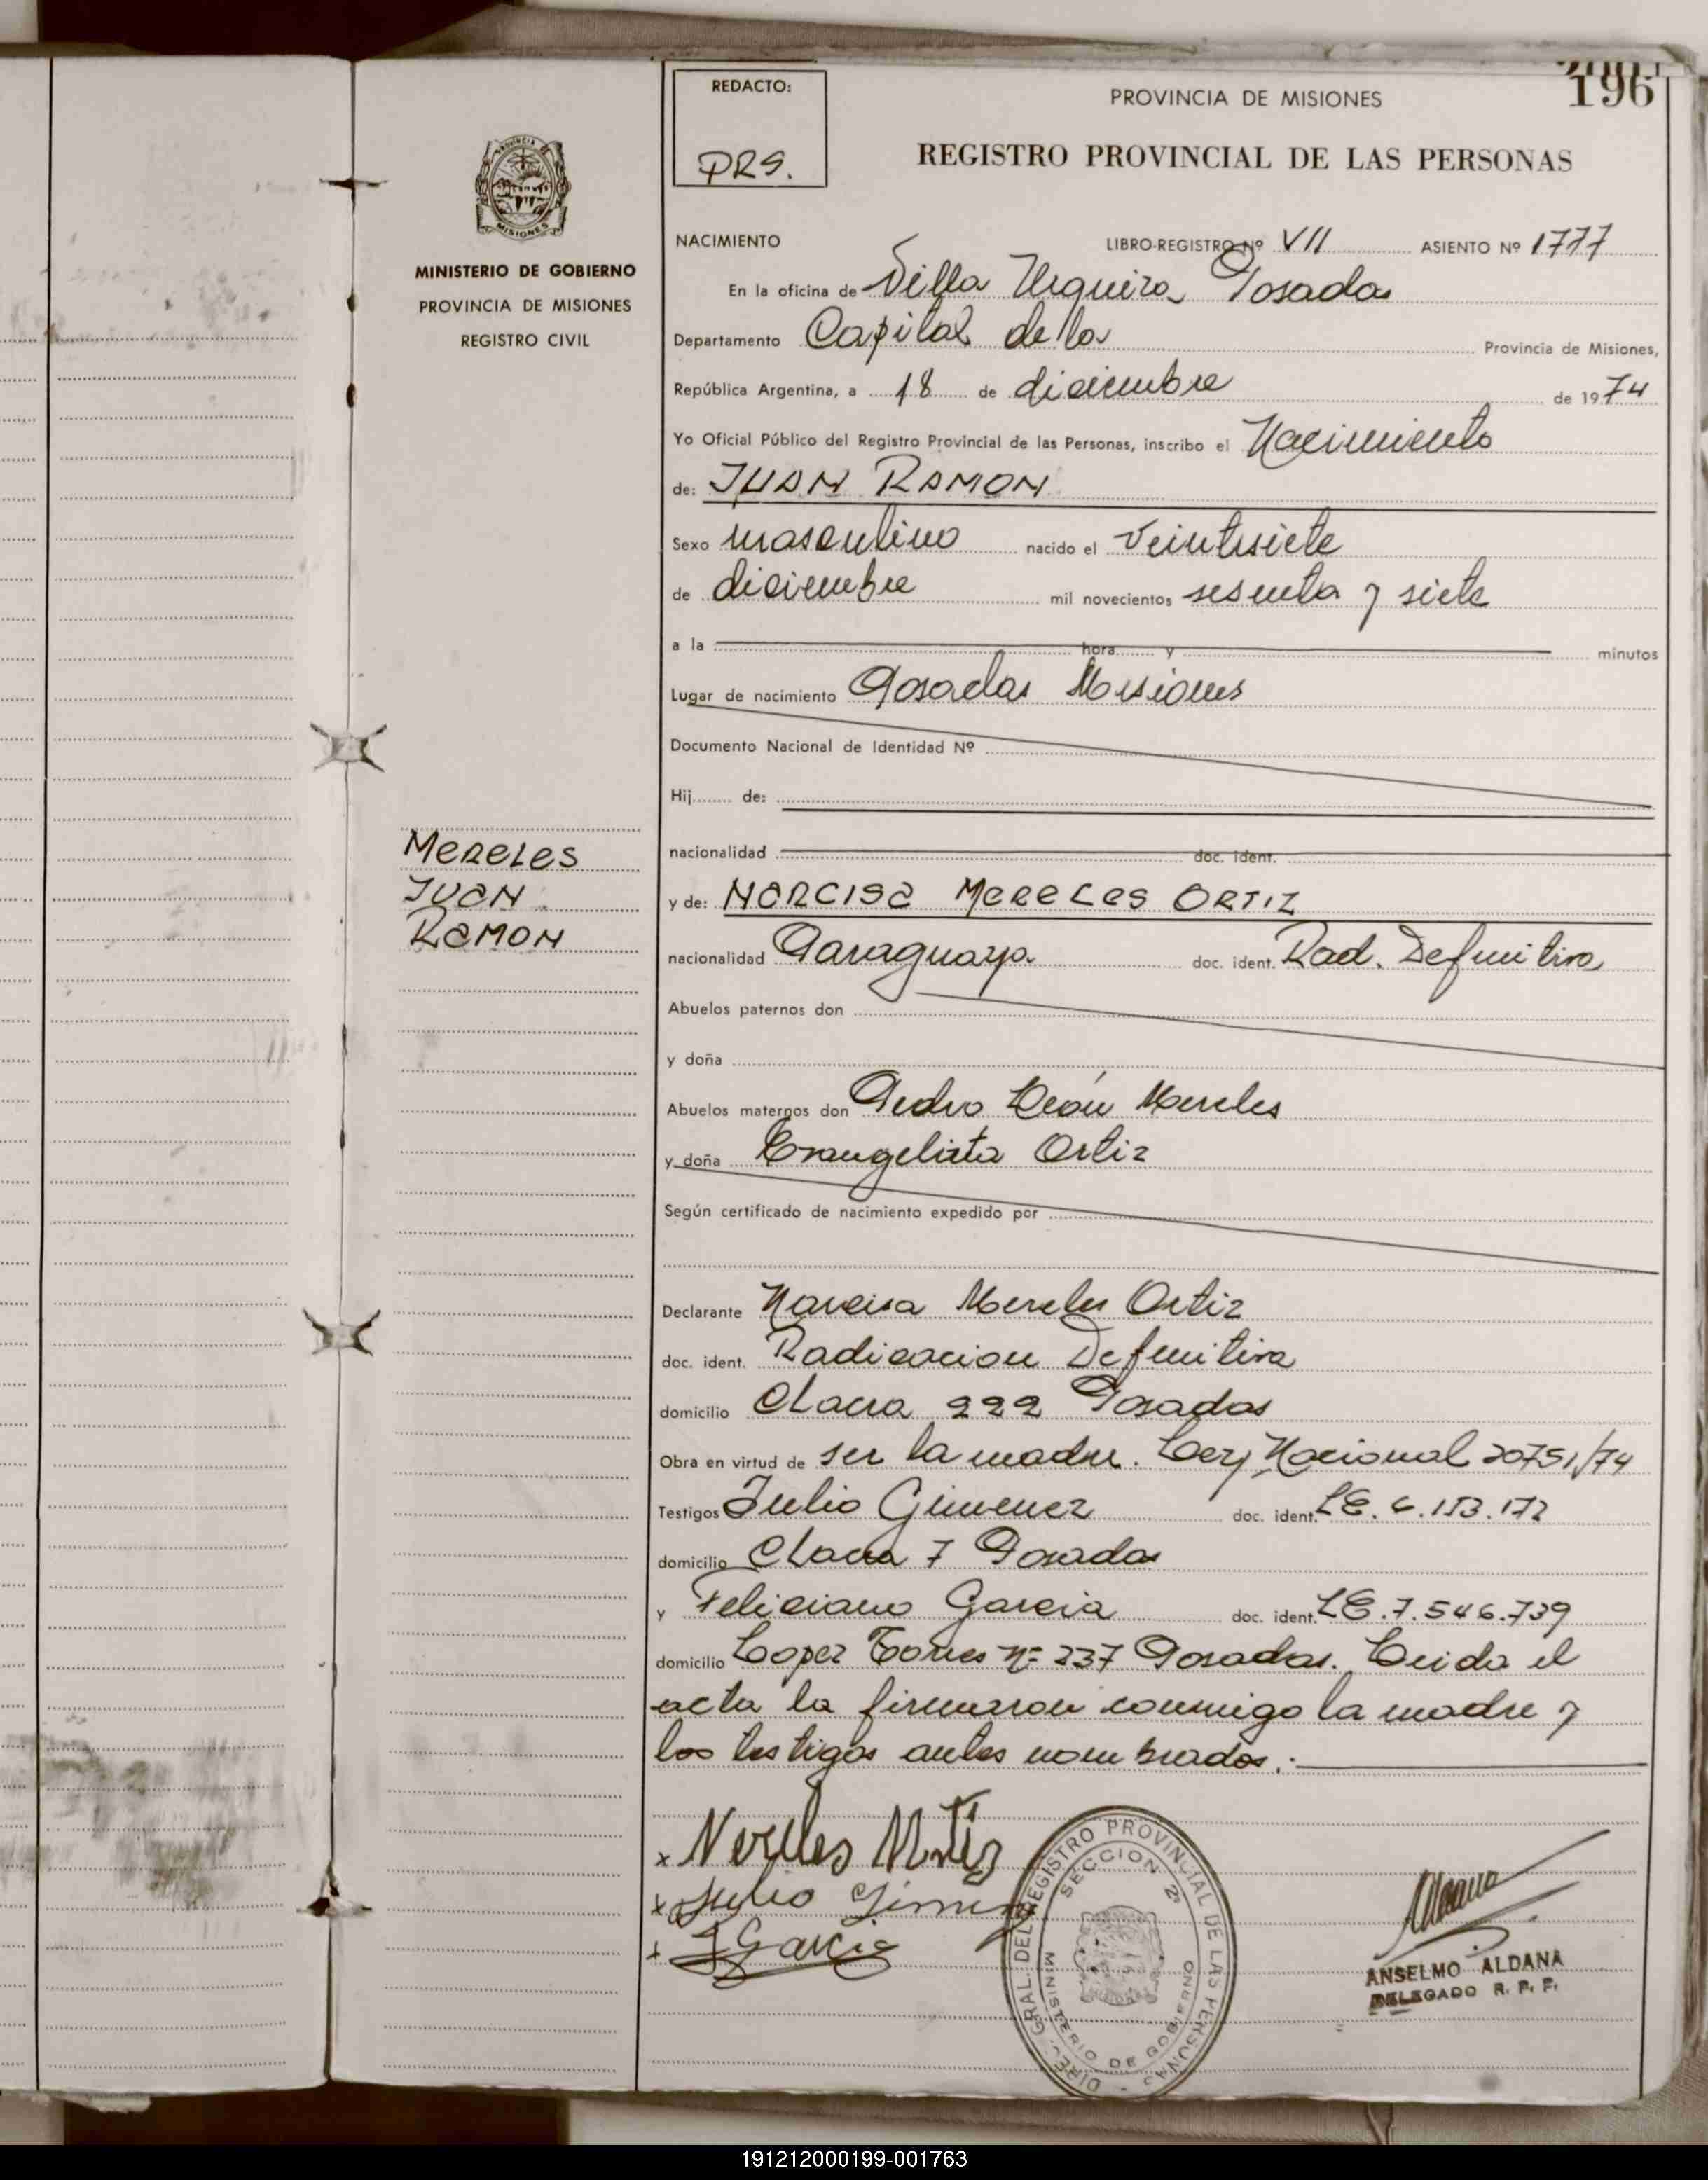 196
REDACTO:
PRS.
PROVINCIA DE MISIONES
REGISTRO PROVINCIAL DE LAS PERSONAS
PROVINCIA DE
MISIONES
MINISTERIO DE GOBIERNO
PROVINCIA DE MISIONES
REGISTRO CIVIL
NACIMIENTO LIBRO-REGISTRO Nº VII ASIENTO Nº 1777
En la oficina de Villa Urquiza Posadas
Departamento Capital de la Provincia de Misiones,
República Argentina, a 18 de diciembre de 1974
Yo Oficial Público del Registro Provincial de las Personas, inscribo el Nacimiento
de: JUAN RAMON
Sexo masculino nacido el veintisiete
de diciembre mil novecientos sesenta y siete
a la hora y minutos
Lugar de nacimiento Posadas Misiones
Documento Nacional de Identidad Nº
Hij de:
nacionalidad doc. ident.
MERELES
JUAN
RAMON
y de: NARCISA MERELES ORTIZ
nacionalidad Paraguaya doc. ident. Rad. Definitiva
Abuelos paternos don
y doña
Abuelos maternos don Pedro León Mereles
y doña Evangelista Ortiz
Según certificado de nacimiento expedido por
Declarante Narcisa Mereles Ortiz
doc. ident. Radicacion Definitiva
domicilio Chacra 222 Posadas
Obra en virtud de ser la madre. Ley Nacional 20751/74
Testigos Julio Gimenez doc. ident. LE. 6.153.172
domicilio Chacra 7 Posadas
y Feliciano Garcia doc. ident. LE.7.546.739
domicilio Lopez Torres Nº 237 Posadas. Leida el
acta la firmaron conmigo la madre y
los testigos antes nombrados.
x Mereles
x Julio Gimenez
x F Garcia
DIREC. GRAL. DEL REGISTRO PROVINCIAL DE LAS PERSONAS
SECCION 2ª
MINISTERIO DE GOBIERNO
Aldana
ANSELMO ALDANA
DELEGADO R. P. P.
191212000199-001763